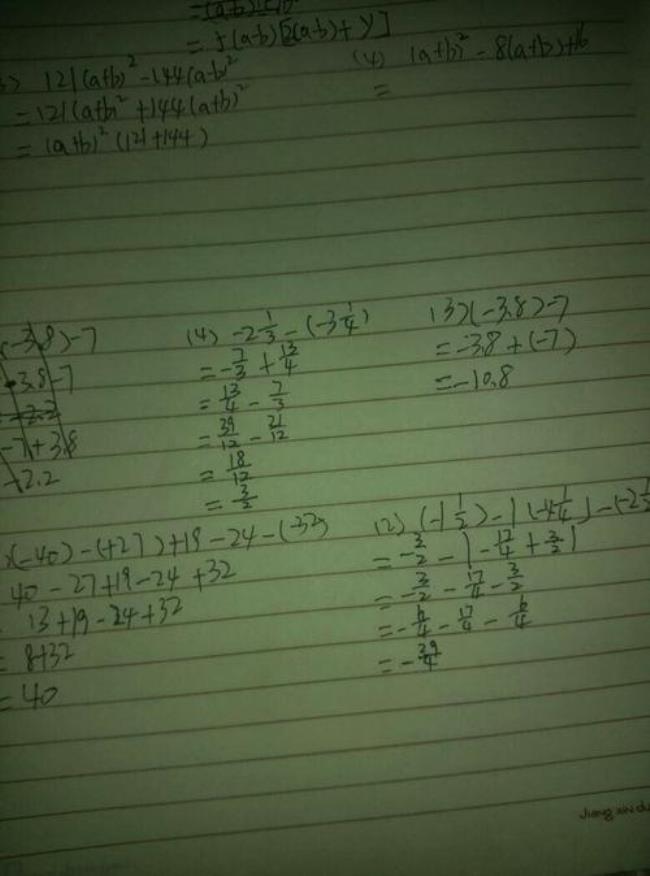 = 5(a-b)[2(a-b)+y]
121(a+b)² -144(a-b)²
=121(a+b)² +144(a+b)²
= (a+b)² (121+144)
(4) (a+b)² - 8(a+b)+16
=
(-3.8)-7
-3.8-7
-7+3.8
-2.2
(4) -2 1/3 - (-3 1/4)
= -7/3 + 13/4
= 13/4 - 7/3
= 39/12 - 21/12
= 18/12
= 3/2
(3)(-3.8)-7
= -3.8 + (-7)
= -10.8
(-40)-(+27)+19-24-(-32)
40-27+19-24+32
13+19-24+32
= 8+32
= 40
(2) (-1 1/2) - | (-4 1/4) - (-2 1/2
= -3/2 - | -17/4 + 3/2 |
= -3/2 - 17/4 - 3/2
= -6/4 - 17/4 - 6/4
= -29/4
Jiang xin du